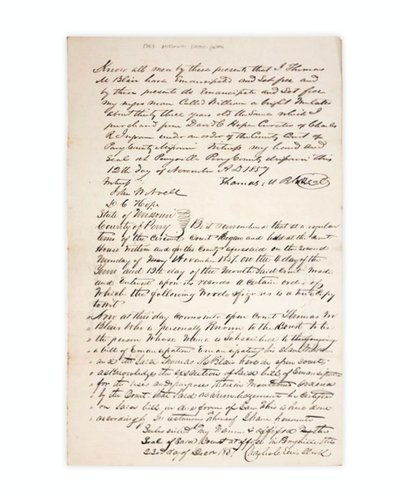 Know all men by these presents that I Thomas
M Blair have Emancipated and Set free and
by these presents do Emancipate and Set free
my negro man Called William a bright Mulatto
about thirty three years old the Same which I
purchased from David C Hope Curator of Charles
R. under an order of the County Court of
Perry County Missouri Witness my hand and
Seal at Perryville Perry County Missouri this
12th day of November A.D. 1857
Witness Thomas M Blair Seal
John W Noell
D. C Hope
State of Missouri
County of Perry Be it remembered that at a regular
term of the Circuit Court Began and held at the
House Within and for the County aforesaid on the Second
Monday of November 1857. on the day of the
Term and 13th day of the Month Said Court Made
and Entered upon its records a Certain order
Which the following Words & figures is a true Copy
to wit
Now at this day Comes into open Court Thomas M
Blair who is personally Known to the Court to be
the person Whose Name is Subscribed to the
a bill of Emancipation Emancipating his Slave
and the Said Thomas M Blair here in open Court
acknowledges the Execution of Said bill of Emancipation
for the uses and purposes therein Mentioned
by the Court that Said acknowledgement be Certified
on Said bill in form of law this is here done
according In testimony Whereof I have hereunto
Subscribed my Name & affixed the
Seal of Said Court at office in Perryville this
23d day of Decr 185 Clerk